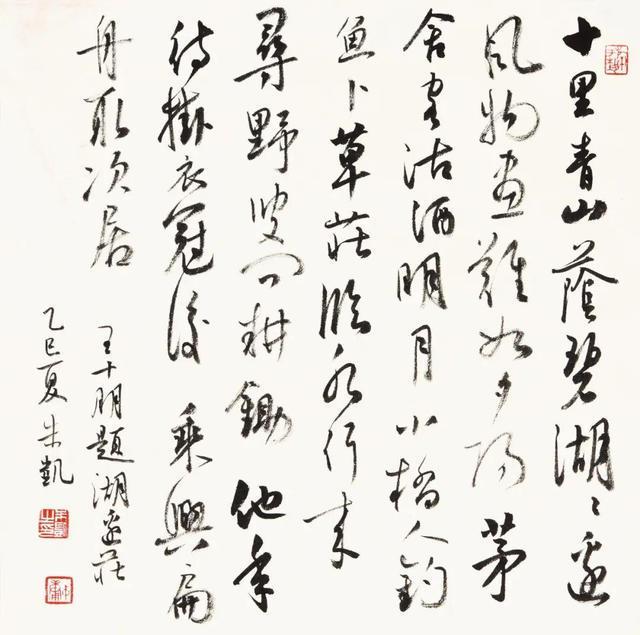 十里青山蔭碧湖〻邊
風物畫難如夕陽茅
舍客沽酒明月小橋人釣
魚卜草莊臨水竹来
尋野叟問耕鋤他年
待掛衣冠後乘興扁
舟取次居
王十朋題湖邊莊
乙巳夏朱凱